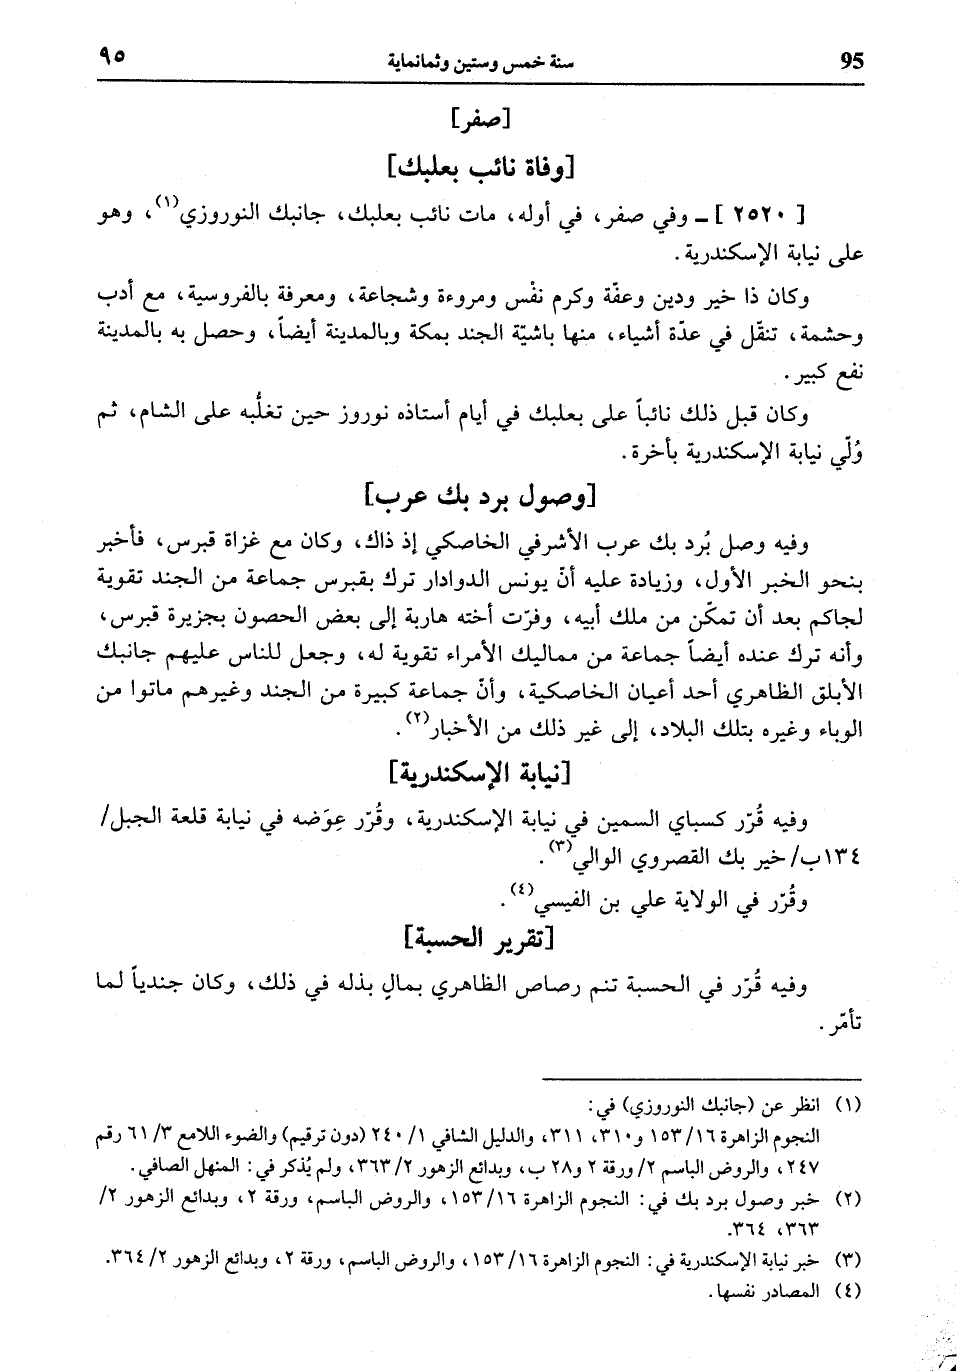 95 سنة خمس وستين وثمانماية ٩٥
[صفر]
[وفاة نائب بعلبك]
[٢٥٢٠] ـ وفي صفر، في أوله، مات نائب بعلبك، جانبك النوروزي(١)، وهو
على نيابة الإسكندرية.
وكان ذا خير ودين وعفّة وكرم نفْس ومروءة وشجاعة، ومعرفة بالفروسية، مع أدب
وحشمة، تنقّل في عدّة أشياء، منها باشيّة الجند بمكة وبالمدينة أيضاً، وحصل به بالمدينة
نفع كبير.
وكان قبل ذلك نائباً على بعلبك في أيام أستاذه نوروز حين تغلُّبه على الشام، ثم
وُلّي نيابة الإسكندرية بأخرة.
[وصول برد بك عرب]
وفيه وصل بُرد بك عرب الأشرفي الخاصكي إذ ذاك، وكان مع غزاة قبرس، فأخبر
بنحو الخبر الأول، وزيادة عليه أنّ يونس الدوادار ترك بقبرس جماعة من الجند تقوية
لجاكم بعد أن تمكّن من ملك أبيه، وفرّت أخته هاربة إلى بعض الحصون بجزيرة قبرس،
وأنه ترك عنده أيضاً جماعة من مماليك الأمراء تقوية له، وجعل للناس عليهم جانبك
الأبلق الظاهري أحد أعيان الخاصكية، وأنّ جماعة كبيرة من الجند وغيرهم ماتوا من
الوباء وغيره بتلك البلاد، إلى غير ذلك من الأخبار(٢).
[نيابة الإسكندرية]
وفيه قُرّر كسباي السمين في نيابة الإسكندرية، وقُرّر عِوَضه في نيابة قلعة الجبل/
١٣٤ب/ خير بك القصروي الوالي(٣).
وقُرّر في الولاية علي بن الفيسي(٤).
[تقرير الحسبة]
وفيه قُرّر في الحسبة تنم رصاص الظاهري بمالٍ بذله في ذلك، وكان جندياً لما
تأمّر.
(١) انظر عن (جانبك النوروزي) في:
النجوم الزاهرة ١٦/ ١٥٣ و٣١٠، ٣١١، والدليل الشافي ١/ ٢٤٠ (دون ترقيم) والضوء اللامع ٣/ ٦١ رقم
٢٤٧، والروض الباسم ٢/ ورقة ٢ و٢٨ ب، وبدائع الزهور ٢/ ٣٦٣، ولم يُذكر في: المنهل الصافي.
(٢) خبر وصول برد بك في: النجوم الزاهرة ١٦/ ١٥٣، والروض الباسم، ورقة ٢، وبدائع الزهور ٢/
٣٦٣، ٣٦٤.
(٣) خبر نيابة الإسكندرية في: النجوم الزاهرة ١٦/ ١٥٣، والروض الباسم، ورقة ٢، وبدائع الزهور ٢/ ٣٦٤.
(٤) المصادر نفسها.